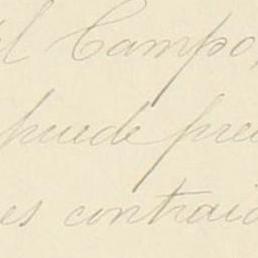 el Campo,
puede pre
es contraid